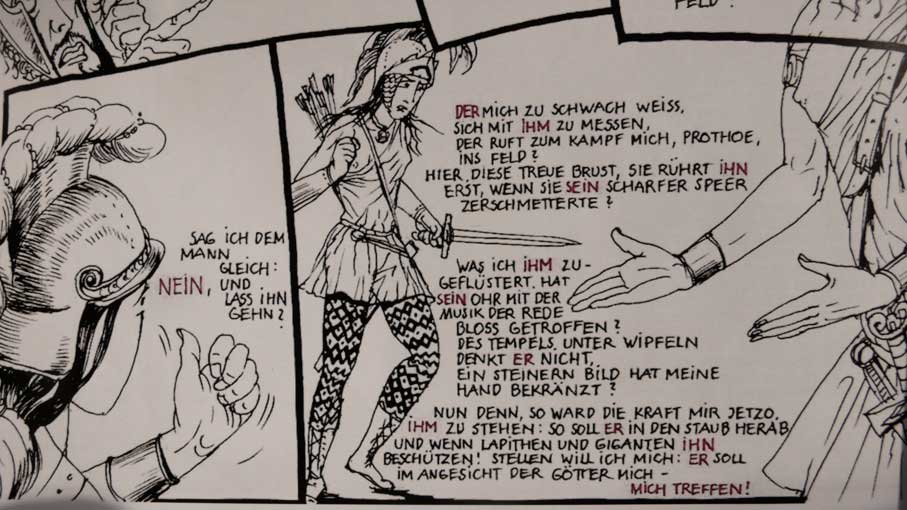 FELD!
SAG ICH DEM
MANN
GLEICH:
NEIN, UND
LASS IHN
GEHN?
DER MICH ZU SCHWACH WEISS,
SICH MIT IHM ZU MESSEN,
DER RUFT ZUM KAMPF MICH, PROTHOE,
INS FELD?
HIER DIESE TREUE BRUST, SIE RÜHRT IHN
ERST, WENN SIE SEIN SCHARFER SPEER
ZERSCHMETTERTE?
WAS ICH IHM ZU-
GEFLÜSTERT, HAT
SEIN OHR MIT DER
MUSIK DER REDE
BLOSS GETROFFEN?
DES TEMPELS UNTER WIPFELN
DENKT ER NICHT,
EIN STEINERN BILD HAT MEINE
HAND BEKRÄNZT?
NUN DENN, SO WARD DIE KRAFT MIR JETZO,
IHM ZU STEHEN: SO SOLL ER IN DEN STAUB HERAB
UND WENN LAPITHEN UND GIGANTEN IHN
BESCHÜTZEN! STELLEN WILL ICH MICH: ER SOLL
IM ANGESICHT DER GÖTTER MICH –
MICH TREFFEN!